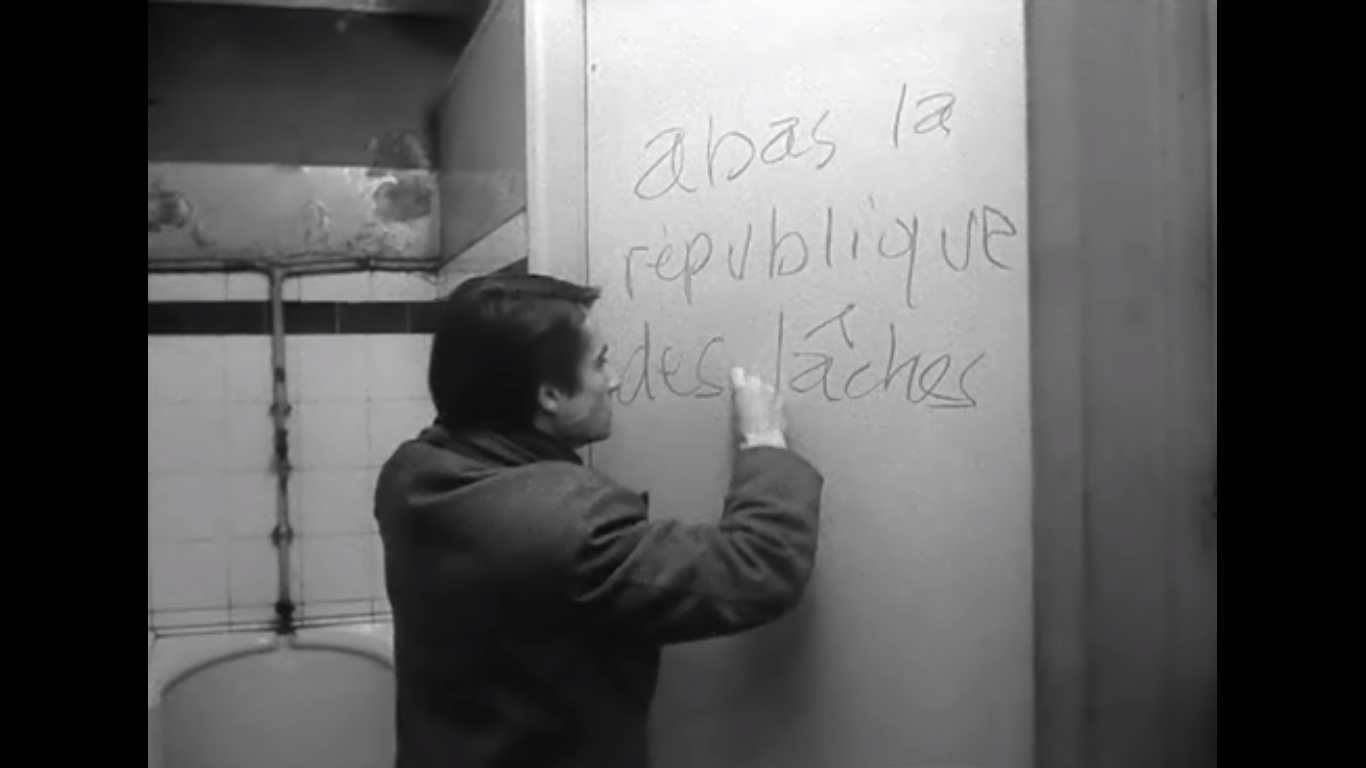 abas la
république
des lâches